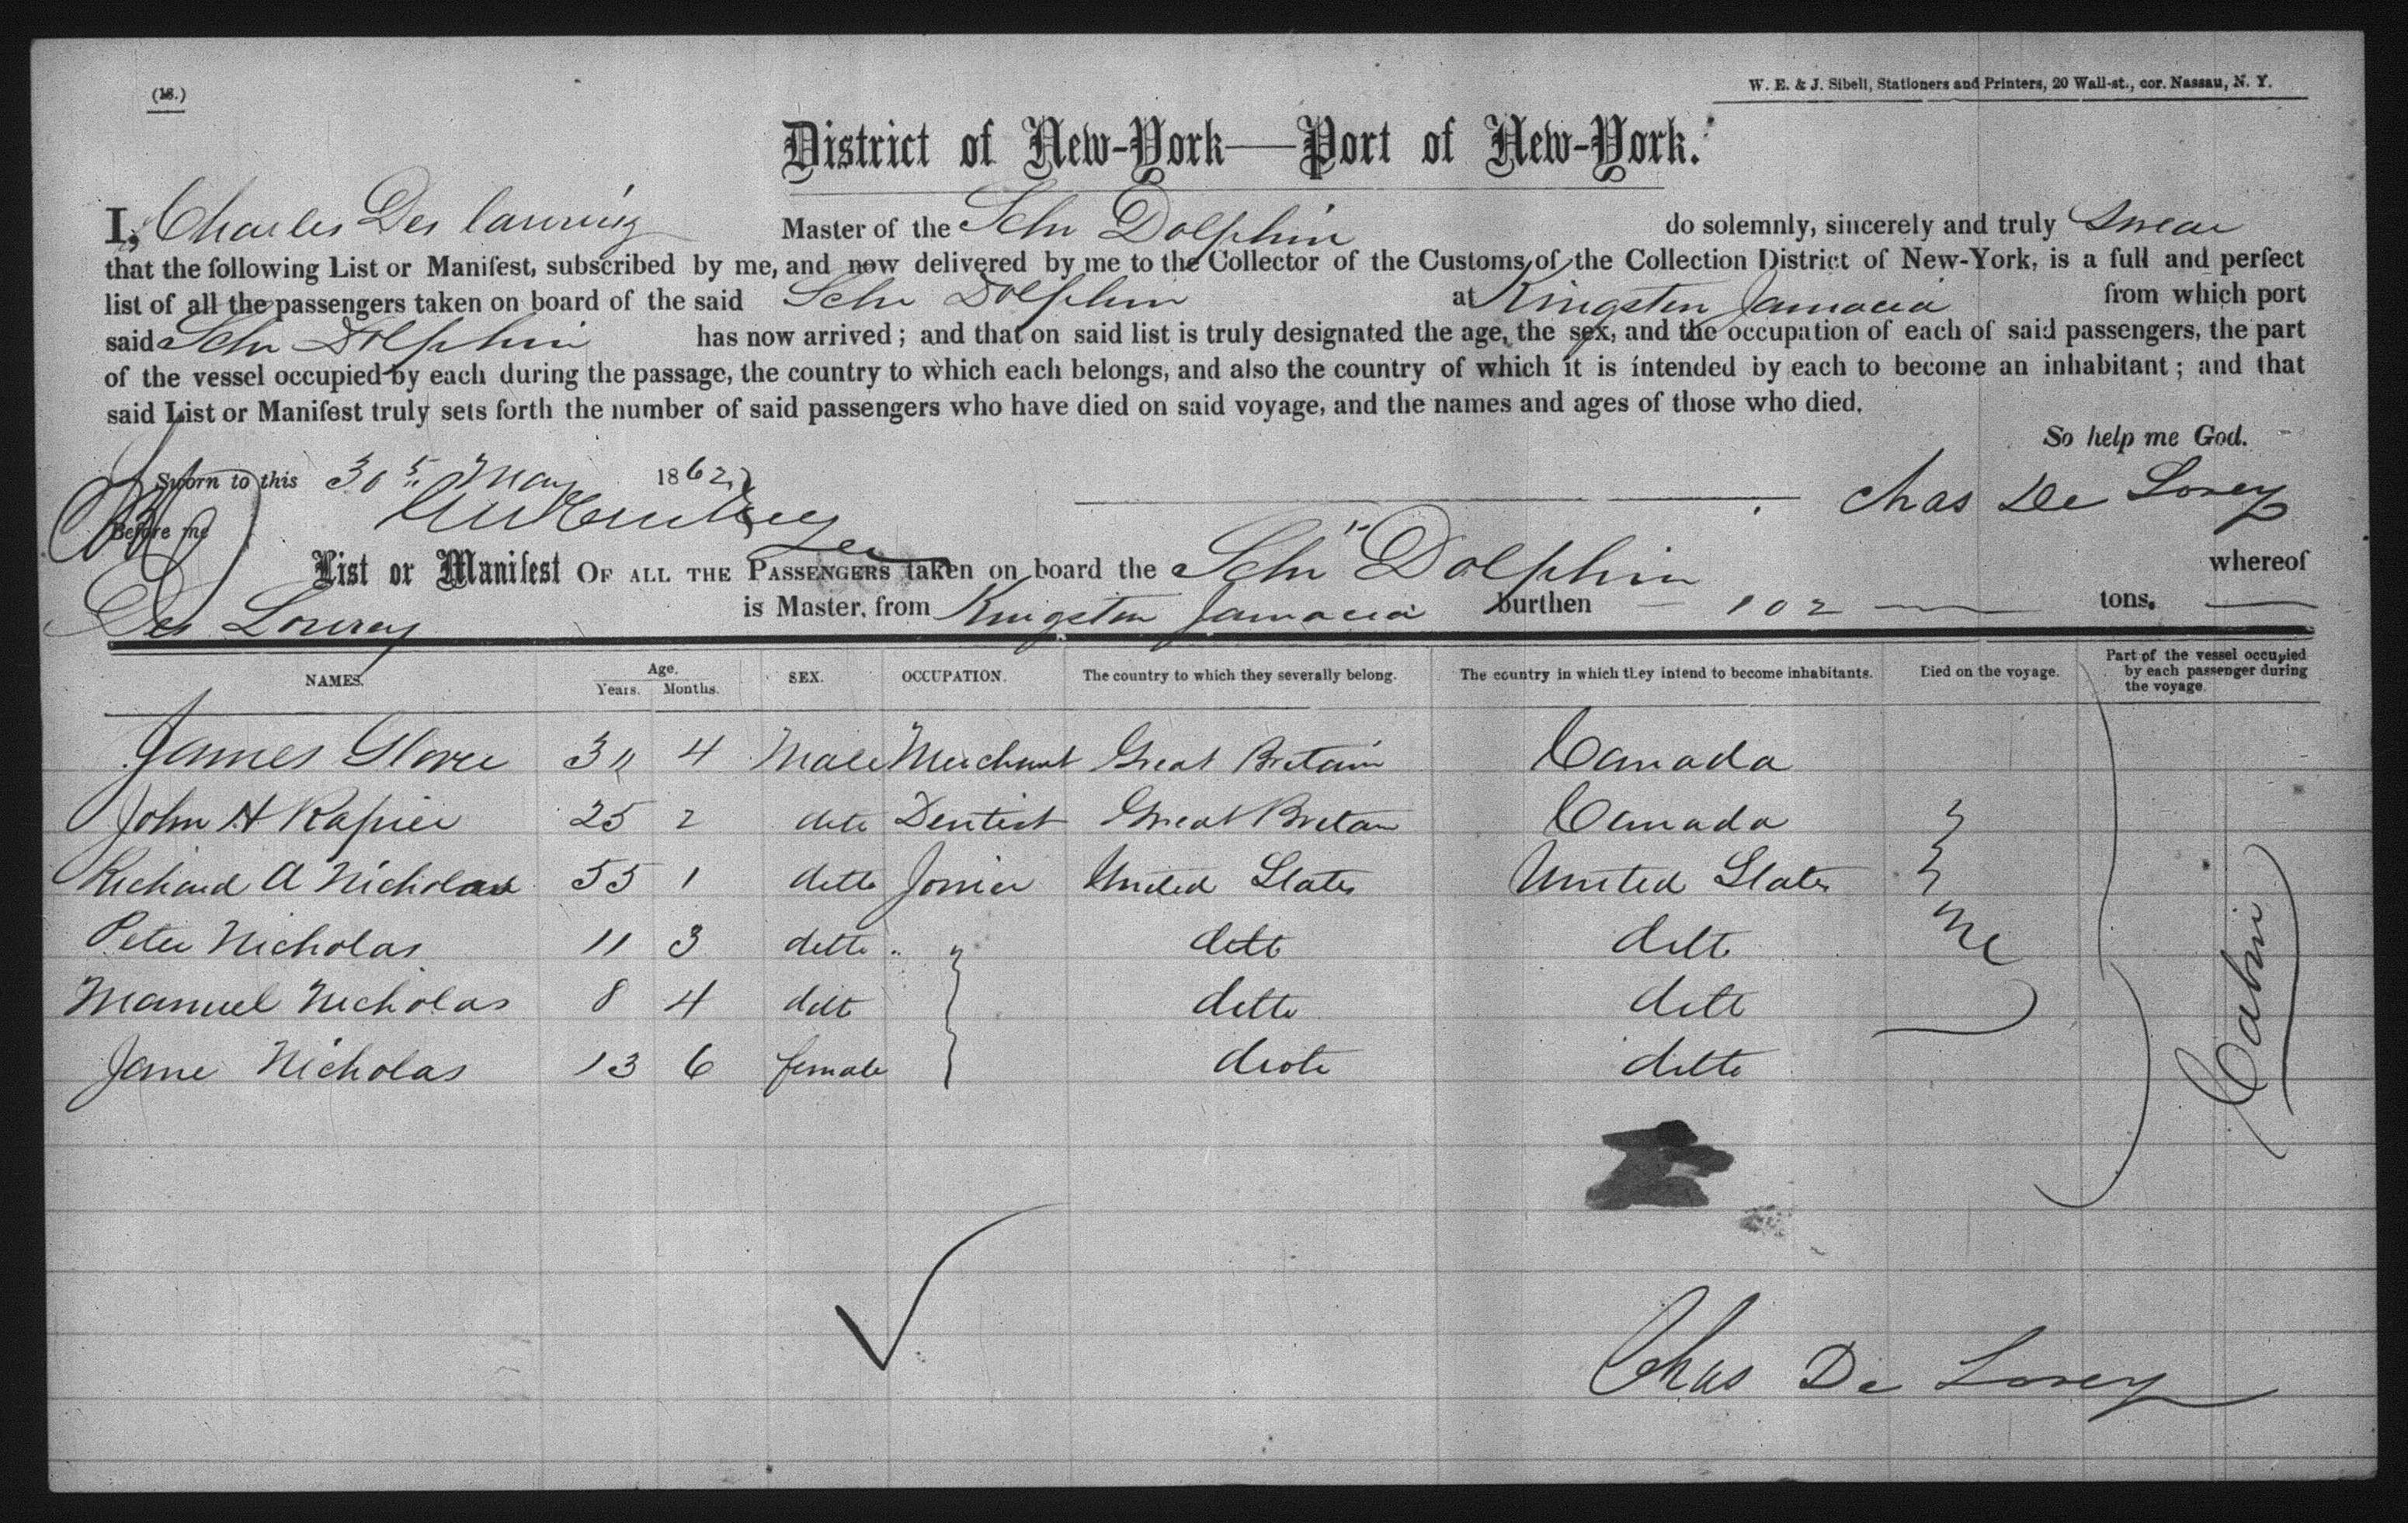 (18.)
W. E. & J. Sibell, Stationers and Printers, 20 Wall-st., cor. Nassau, N. Y.
District of New-York—Port of New-York.
I, Charles Des Master of the Schr Dolphin do solemnly, sincerely and truly Swear
that the following List or Manifest, subscribed by me, and now delivered by me to the Collector of the Customs of the Collection District of New-York, is a full and perfect
list of all the passengers taken on board of the said Schr Dolphin at Kingston Jamacia from which port
said Schr Dolphin has now arrived; and that on said list is truly designated the age, the sex, and the occupation of each of said passengers, the part
of the vessel occupied by each during the passage, the country to which each belongs, and also the country of which it is intended by each to become an inhabitant; and that
said List or Manifest truly sets forth the number of said passengers who have died on said voyage, and the names and ages of those who died.
So help me God.
Sworn to this 30 May 1862
Before me
Chas De Lorey
List or Manifest OF ALL THE PASSENGERS taken on board the Schr Dolphin whereof
Des is Master, from Kingston Jamacia burthen 102 tons.
NAMES. Age. Years. Months. SEX. OCCUPATION. The country to which they severally belong. The country in which they intend to become inhabitants. Died on the voyage. Part of the vessel occupied by each passenger during the voyage.
James Glover 4 Male Merchant Great Britain Canada
John H Rapier 25 2 ditto Dentist Great Britan Canada
Richard A Nicholas 55 1 ditto Jonier United States United States
Peter Nicholas 11 3 ditto " ditto ditto
Manuel Nicholas 8 4 ditto ditto ditto
Jane Nicholas 13 6 female ditto ditto
Cabin
Chas De Lorey